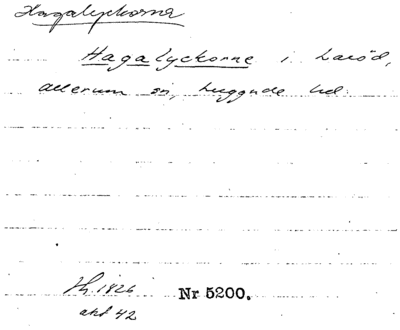 Hagalyckorna
Hagalyckorne i Laröd,
Allerum sn, Luggude hd.
Hj. 1826 Nr 5200.
akt 42